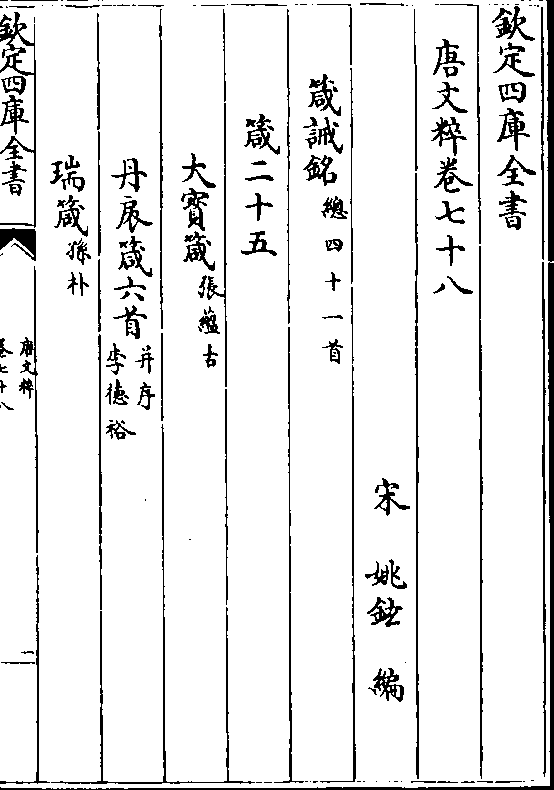 欽定四庫全書
唐文粹卷七十八
宋 姚鉉 編
箴誡銘總四十一首
箴二十五
大寳箴張藴古
丹扆箴六首并序李德裕
瑞箴孫朴
欽定四庫全書
唐文粹
卷七十八
一